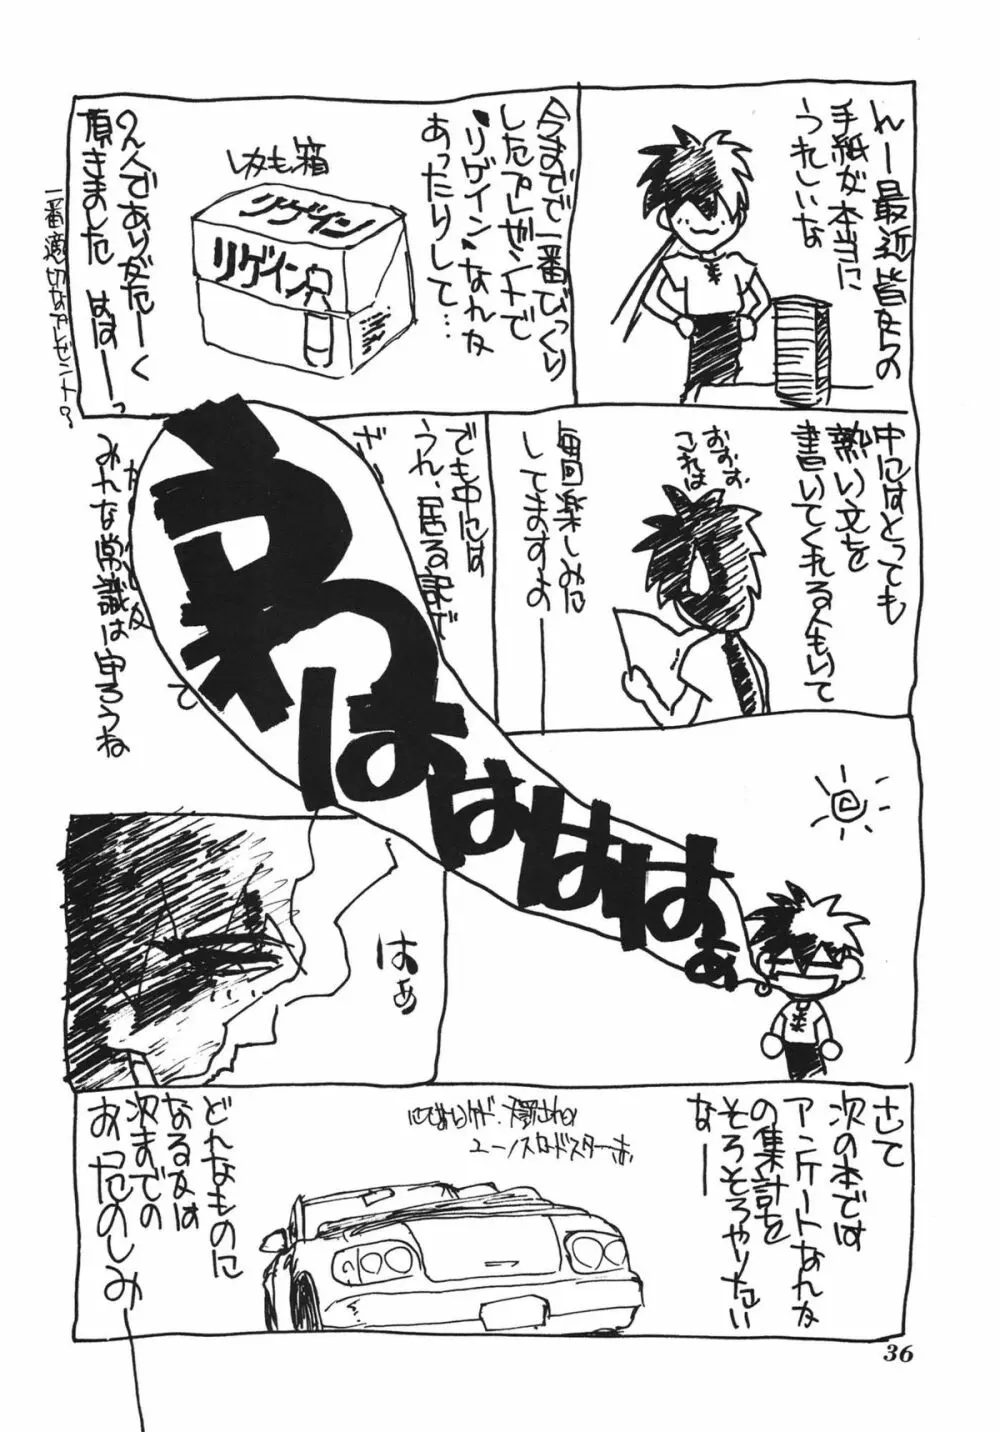 んー最近皆なの
手紙が本当に
うれしいな
今まで一番びっくり
したプレゼントで
"リゲイン"なんな
あったりして…
しかも箱
リゲイン
リゲイン
頂きました
一番適切なプレゼント?
中にはとっても
熱い文を
書いてくれる人もいて
おおず
これは
毎回楽しみに
してますよのー
でも中には
うれ
みんな常識は守ろうね
て
わはははははぁ
はぁ
さて
次の本では
アンケートなんな
の集計を
そろそろやりたい
なー
ユーノスロードスター
どんなものに
なるかは
次までの
おったのしみー
36